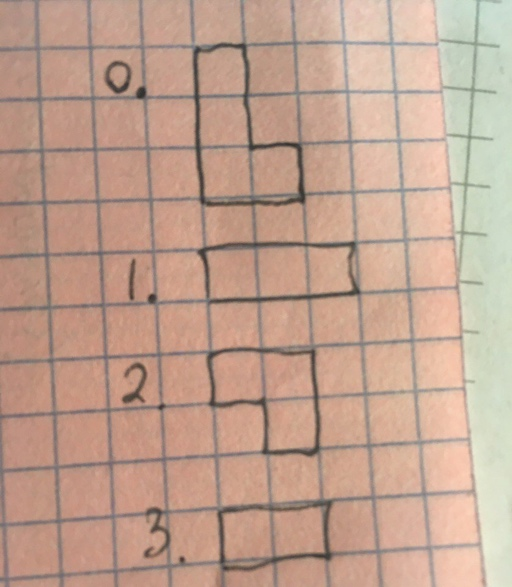 0.
1.
2.
3.